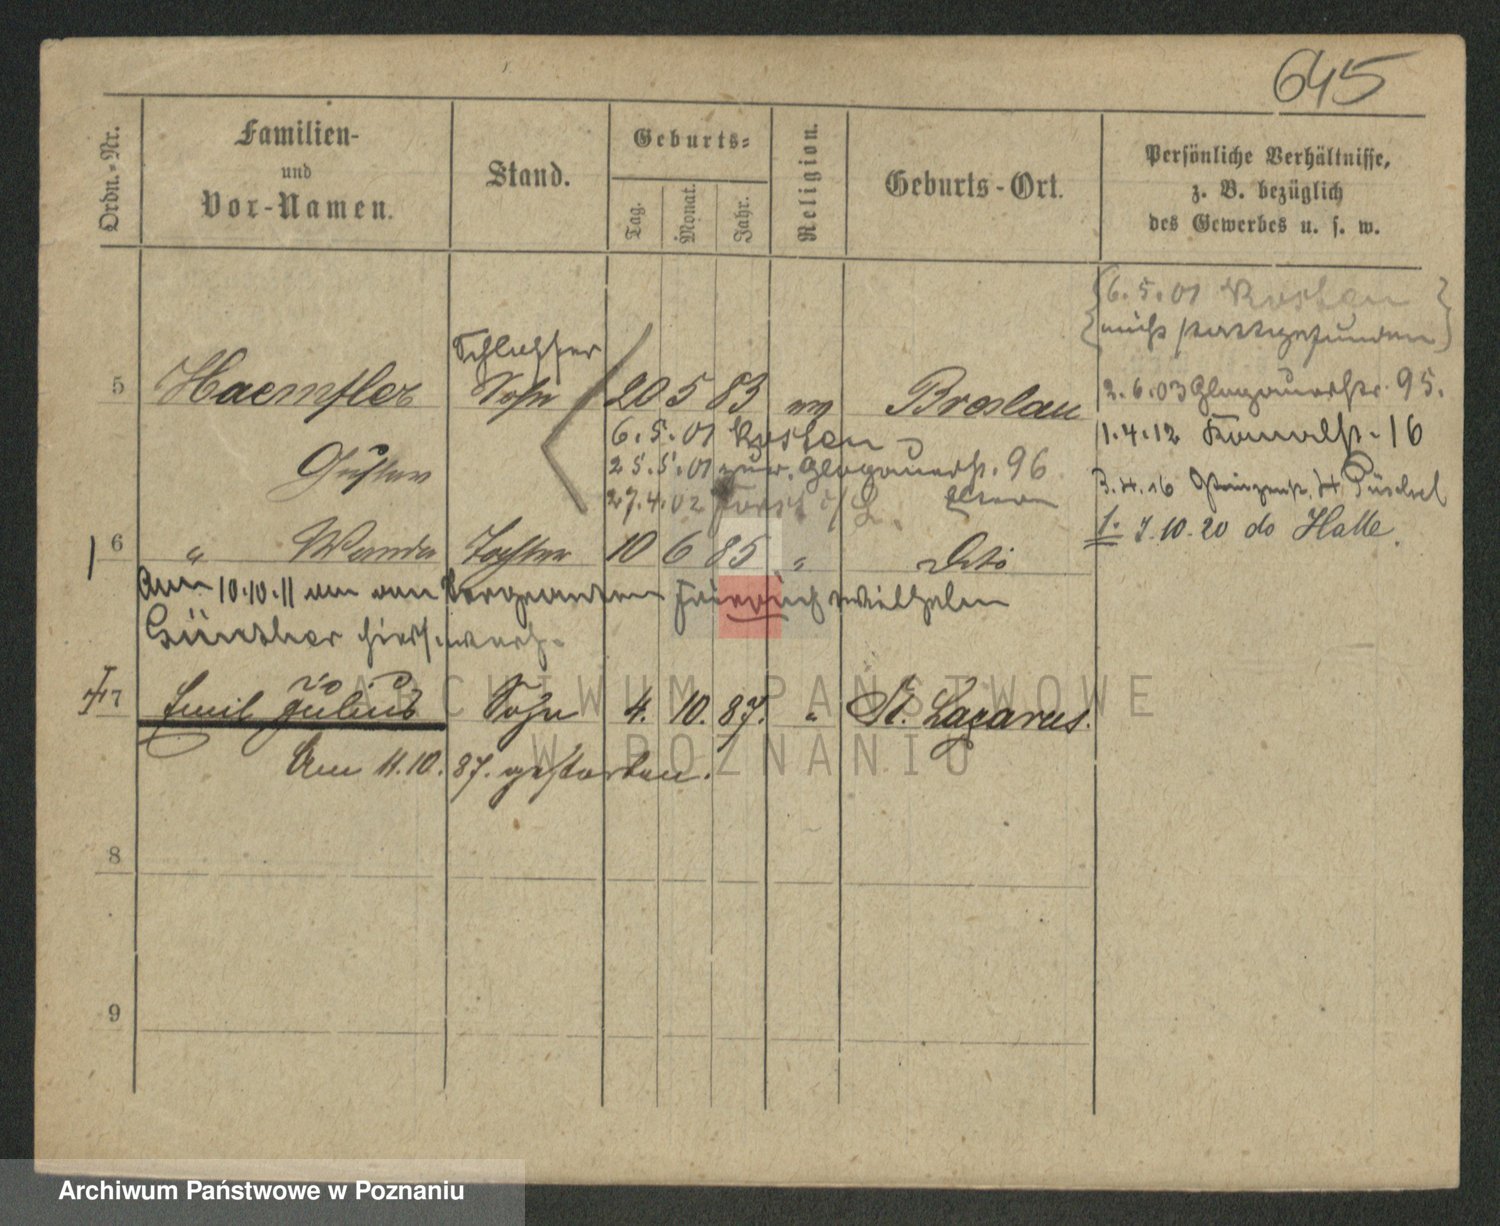 645
Ordn.-Nr.
Familien-
und
Vor-Namen.
Stand.
Geburts-
Tag.
Monat.
Jahr.
Religion.
Geburts-Ort.
Persönliche Verhältnisse,
z. B. bezüglich
des Gewerbes u. s. w.
6.5.01 Kosten
nicht stattgefunden
Schlosser
5 Haempler Sohn 20 5 83 ev Breslau
2.6.03 Glogauerstr. 95.
6.5.01 Kosten
1.4.12 16
Gustav
25.5.01 zur. Glogauerstr. 96
27.4.02 Forst i/L. Eltern
3.4.16 4 Püschel
6 " Wanda Tochter 10 6 85 " Dito
1. 7.10.20 do Halle.
Am 10.10.11 an den Wilhelm
Günther hier
7 Emil Julius Sohn 4. 10. 87. " St. Lazarus.
Am 11.10.87. gestorben.
8
9
ARCHIWUM PAŃSTWOWE
W POZNANIU
Archiwum Państwowe w Poznaniu